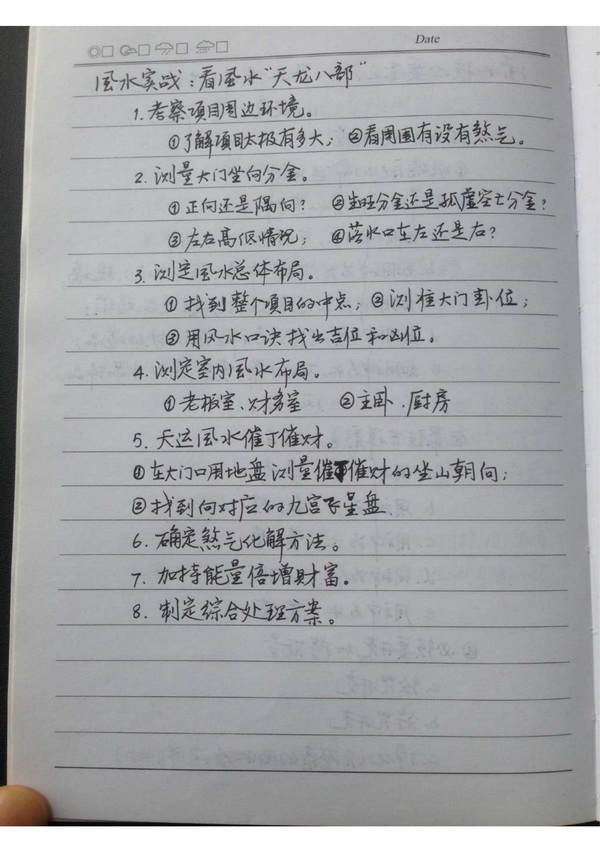 Date
风水实战：看风水"天龙八部"
1.考察项目周边环境。
①了解项目太极有多大；②看周围有没有煞气。
2.测量大门坐向分金。
①正向还是隅向？ ②坐旺分金还是孤虚空亡分金？
③左右高低情况； ④落水口在左还是右？
3.测定风水总体布局。
①找到整个项目的中点；②测准大门卦位；
③用风水口诀找出吉位和凶位。
4.测定室内风水布局。
①老板室、财务室 ②主卧.厨房
5.天运风水催丁催财。
①在大门口用地盘测量催丁催财的坐山朝向；
②找到向对应的九宫飞星盘.
6.确定煞气化解方法。
7.加持能量倍增财富。
8.制定综合处理方案。